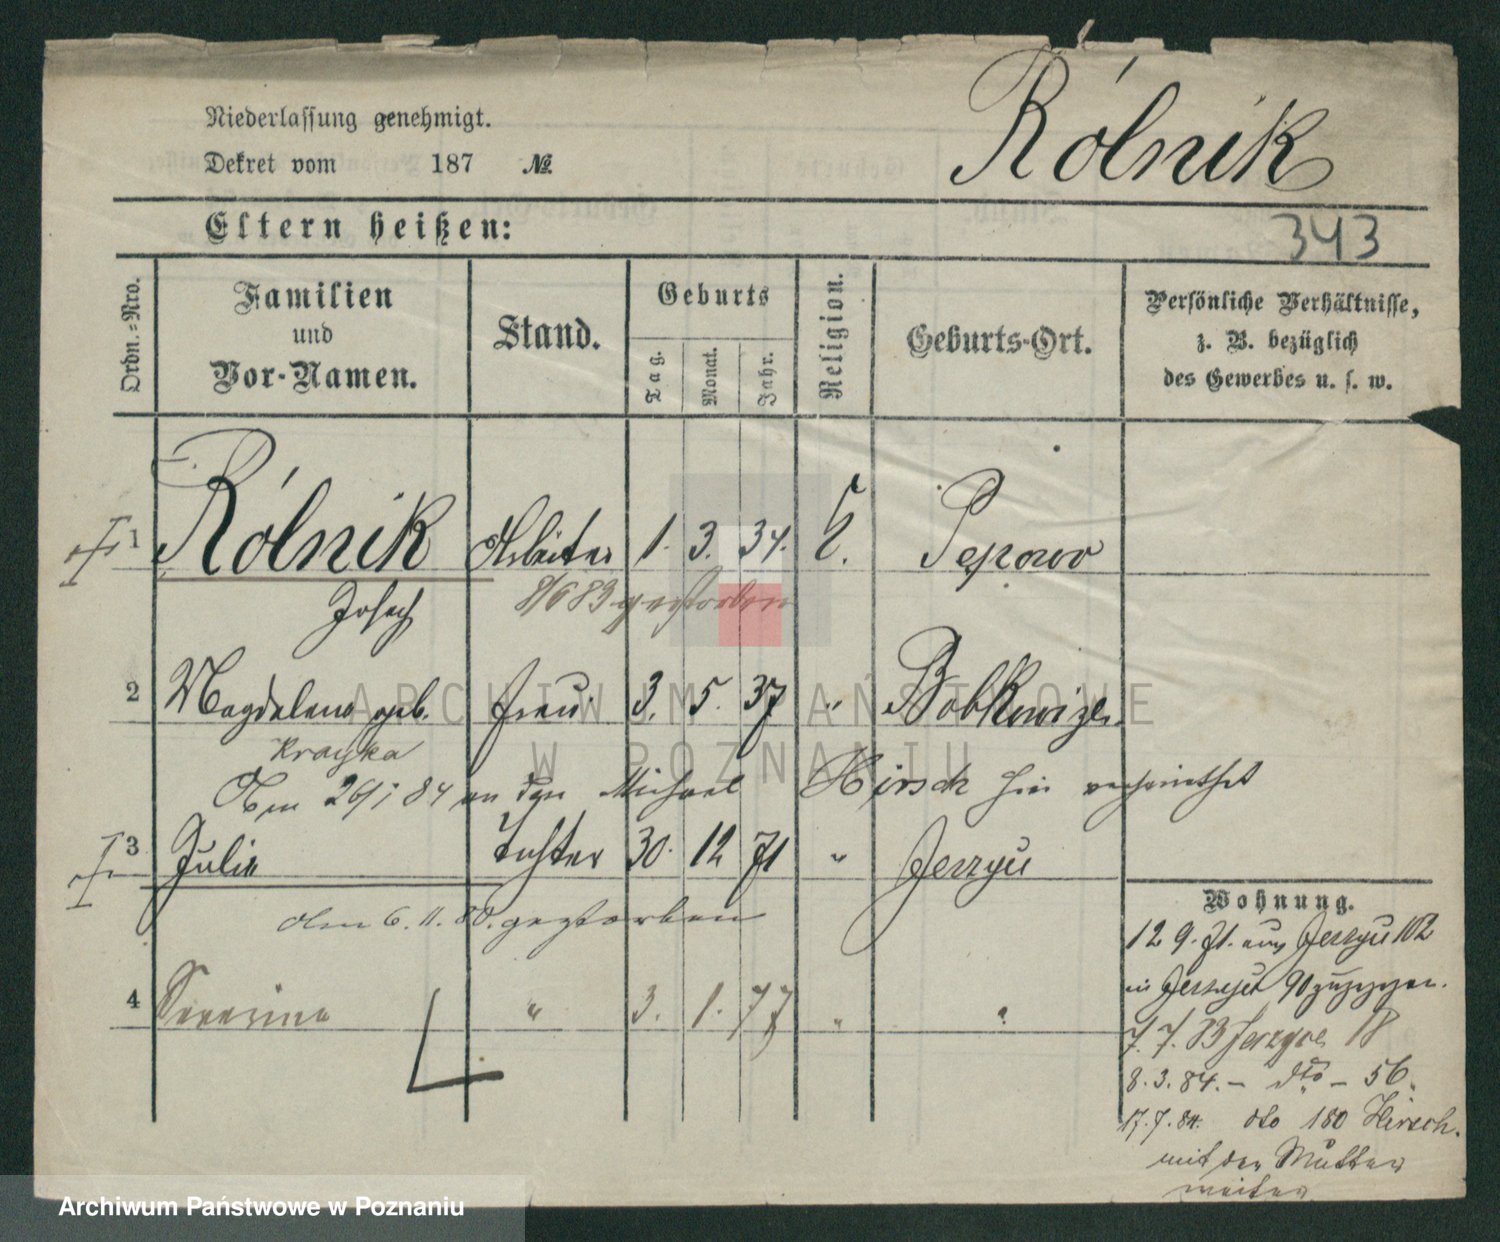 Niederlassung genehmigt.
Rólnik
Dekret vom 187 №
Eltern heißen:
343
Ordn.=Nro.
Familien und Vor-Namen.
Stand.
Geburts
Tag. Monat. Jahr.
Religion.
Geburts-Ort.
Persönliche Verhältnisse,
z. B. bezüglich
des Gewerbes u. s. w.
1 Rólnik Arbeiter 1. 3. 34. Pepowo
Josef 8/6 83 gestorben
2 Magdalena geb. Frau 3. 5. 37 "
Krayka
Am 84 an den Michael Hirsch hier verheirathet
3 Julie Tochter 30. 12 71 " Jerzyce
den 6. 11. 80. gestorben
4 Severina " 3. 1. 77 " "
Wohnung.
12 9. 71. aus Jerzyce 102
in Jerzyce 90 gezogen.
7. 7. 83 Jerzyce 18
8. 3. 84. – dto – 56.
17. 7. 84. dto 180 Hirsch.
mit der Mutter
weiter
ARCHIWUM PAŃSTWOWE
W POZNANIU
Archiwum Państwowe w Poznaniu